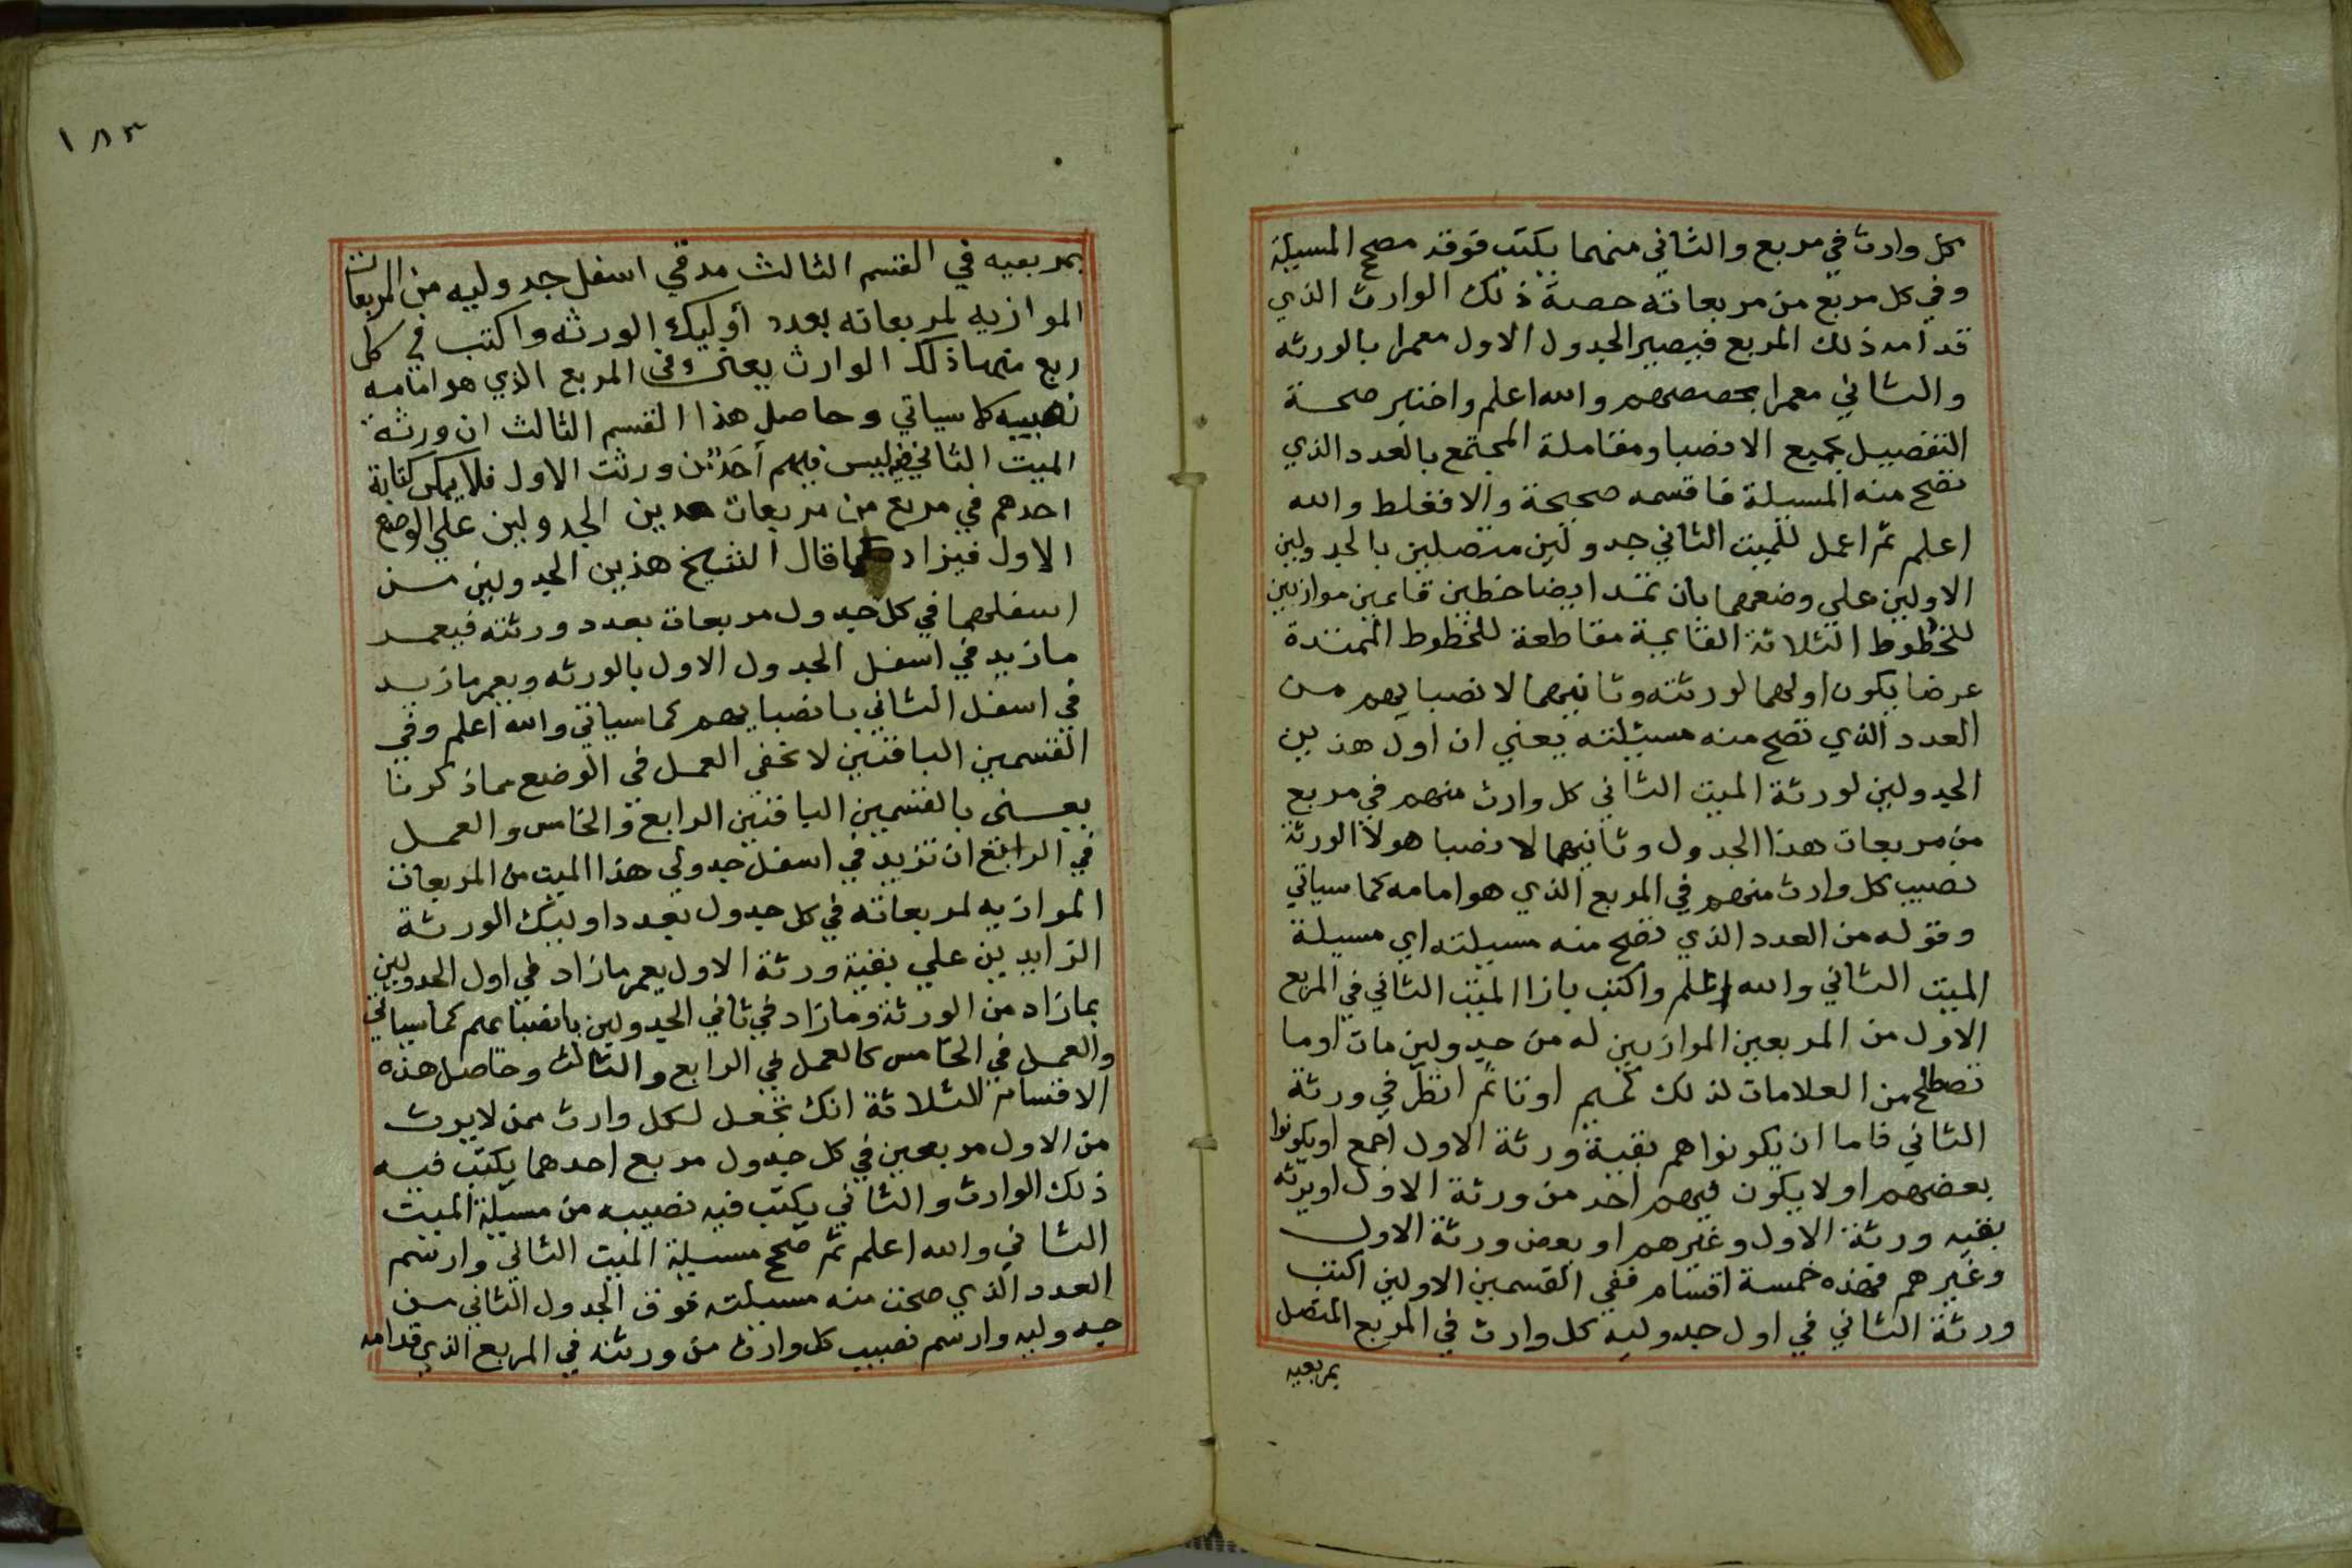 كل وارث في مربع والثاني منهما يكتب فوقه مصح المسيلة
وفي كل مربع من مربعاته حصة ذلك الوارث الذي
قدامه ذلك المربع فيصير الجدول الاول معمرا بالورثه
والثاني معمرا بحصصهم والله اعلم واختبر صحة
التفصيل بجميع الانصبا ومقابلة المجتمع بالعدد الذي
تصح منه المسيلة فاقسمه صحيحة والا فغلط والله
اعلم ثم اعمل للميت الثاني جدولين متصلين بالجدولين
الاولين علي وضعهما بان تمد ايضا خطين قايمين موازيين
للخطوط الثلاثة القايمة مقاطعة للخطوط الممتدة
عرضا يكون اولهما لورثته وثانيهما لانصبايهم من
العدد الذي تصح منه مسيئلته يعني ان اول هذين
الجدولين لورثة الميت الثاني كل وارث منهم في مربع
من مربعات هذا الجدول وثانيهما لانصبا هولا الورثة
نصيب كل وارث منهم في المربع الذي هو امامه كما سياتي
وقوله من العدد الذي تصح منه مسيلته اي مسيلة
الميت الثاني والله اعلم واكتب بازا الميت الثاني في المربع
الاول من المربعين الموازيين له من جدولين مات اوما
تصطلح من العلامات لذلك كميم اوتا ثم انظر في ورثة
الثاني فاما ان يكونوا هم بقية ورثة الاول اجمع اويكونوا
بعضهم او لا يكون فيهم احد من ورثة الاول اويرثه
بقيه ورثة الاول وغيرهم او بعض ورثة الاول
وغيرهم فهذه خمسة اقسام ففي القسمين الاولين اكتب
ورثة الثاني في اول جدوليه كل وارث في المربع المتصل
بمربعيه
١٨٣
بمربعيه في القسم الثالث مد في اسفل جدوليه من المربعات
الموازيه لمربعاته بعدد أوليك الورثه واكتب في كل
ربع منها ذلك الوارث يعني وفي المربع الذي هو امامه
نصيبه كما سياتي وحاصل هذا القسم الثالث ان ورثة
الميت الثاني ليس فيهم أحد من ورثت الاول فلا يمكن كتابة
احدهم في مربع من مربعات هدين الجدولين علي الوضع
الاول فيزاد كما قال الشيخ هذين الجدولين من
اسفلهما في كل جدول مربعات بعدد ورثته فيعمر
مازيد في اسفل الجدول الاول بالورثه ويعمر مازيد
في اسفل الثاني بانصبايهم كما سياتي والله اعلم وفي
القسمين الباقيين لا تخفي العمل في الوضع مما ذكرنا
يعني بالقسمين الباقيين الرابع والخامس والعمل
في الرابع ان تزيد في اسفل جدولي هذا الميت من المربعات
الموازيه لمربعاته في كل جدول بعدد اوليك الورثة
الزايدين علي بقية ورثة الاول يعمر مازاد في اول الجدولين
بمازاد من الورثة ومازاد في ثاني الجدولين بانصبايهم كما سياتي
والعمل في الخامس كالعمل في الرابع والثالث وحاصل هذه
الاقسام الثلاثة انك تجعل لكل وارث ممن لا يرث
من الاول مربعين في كل جدول مربع احدهما يكتب فيه
ذلك الوارث والثاني يكتب فيه نصيبه من مسيلة الميت
الثاني والله اعلم ثم صحح مسيلة الميت الثاني وارسم
العدد الذي صحت منه مسيلته فوق الجدول الثاني من
جدوليه وارسم نصيب كل وارث من ورثته في المربع الذي قدامه